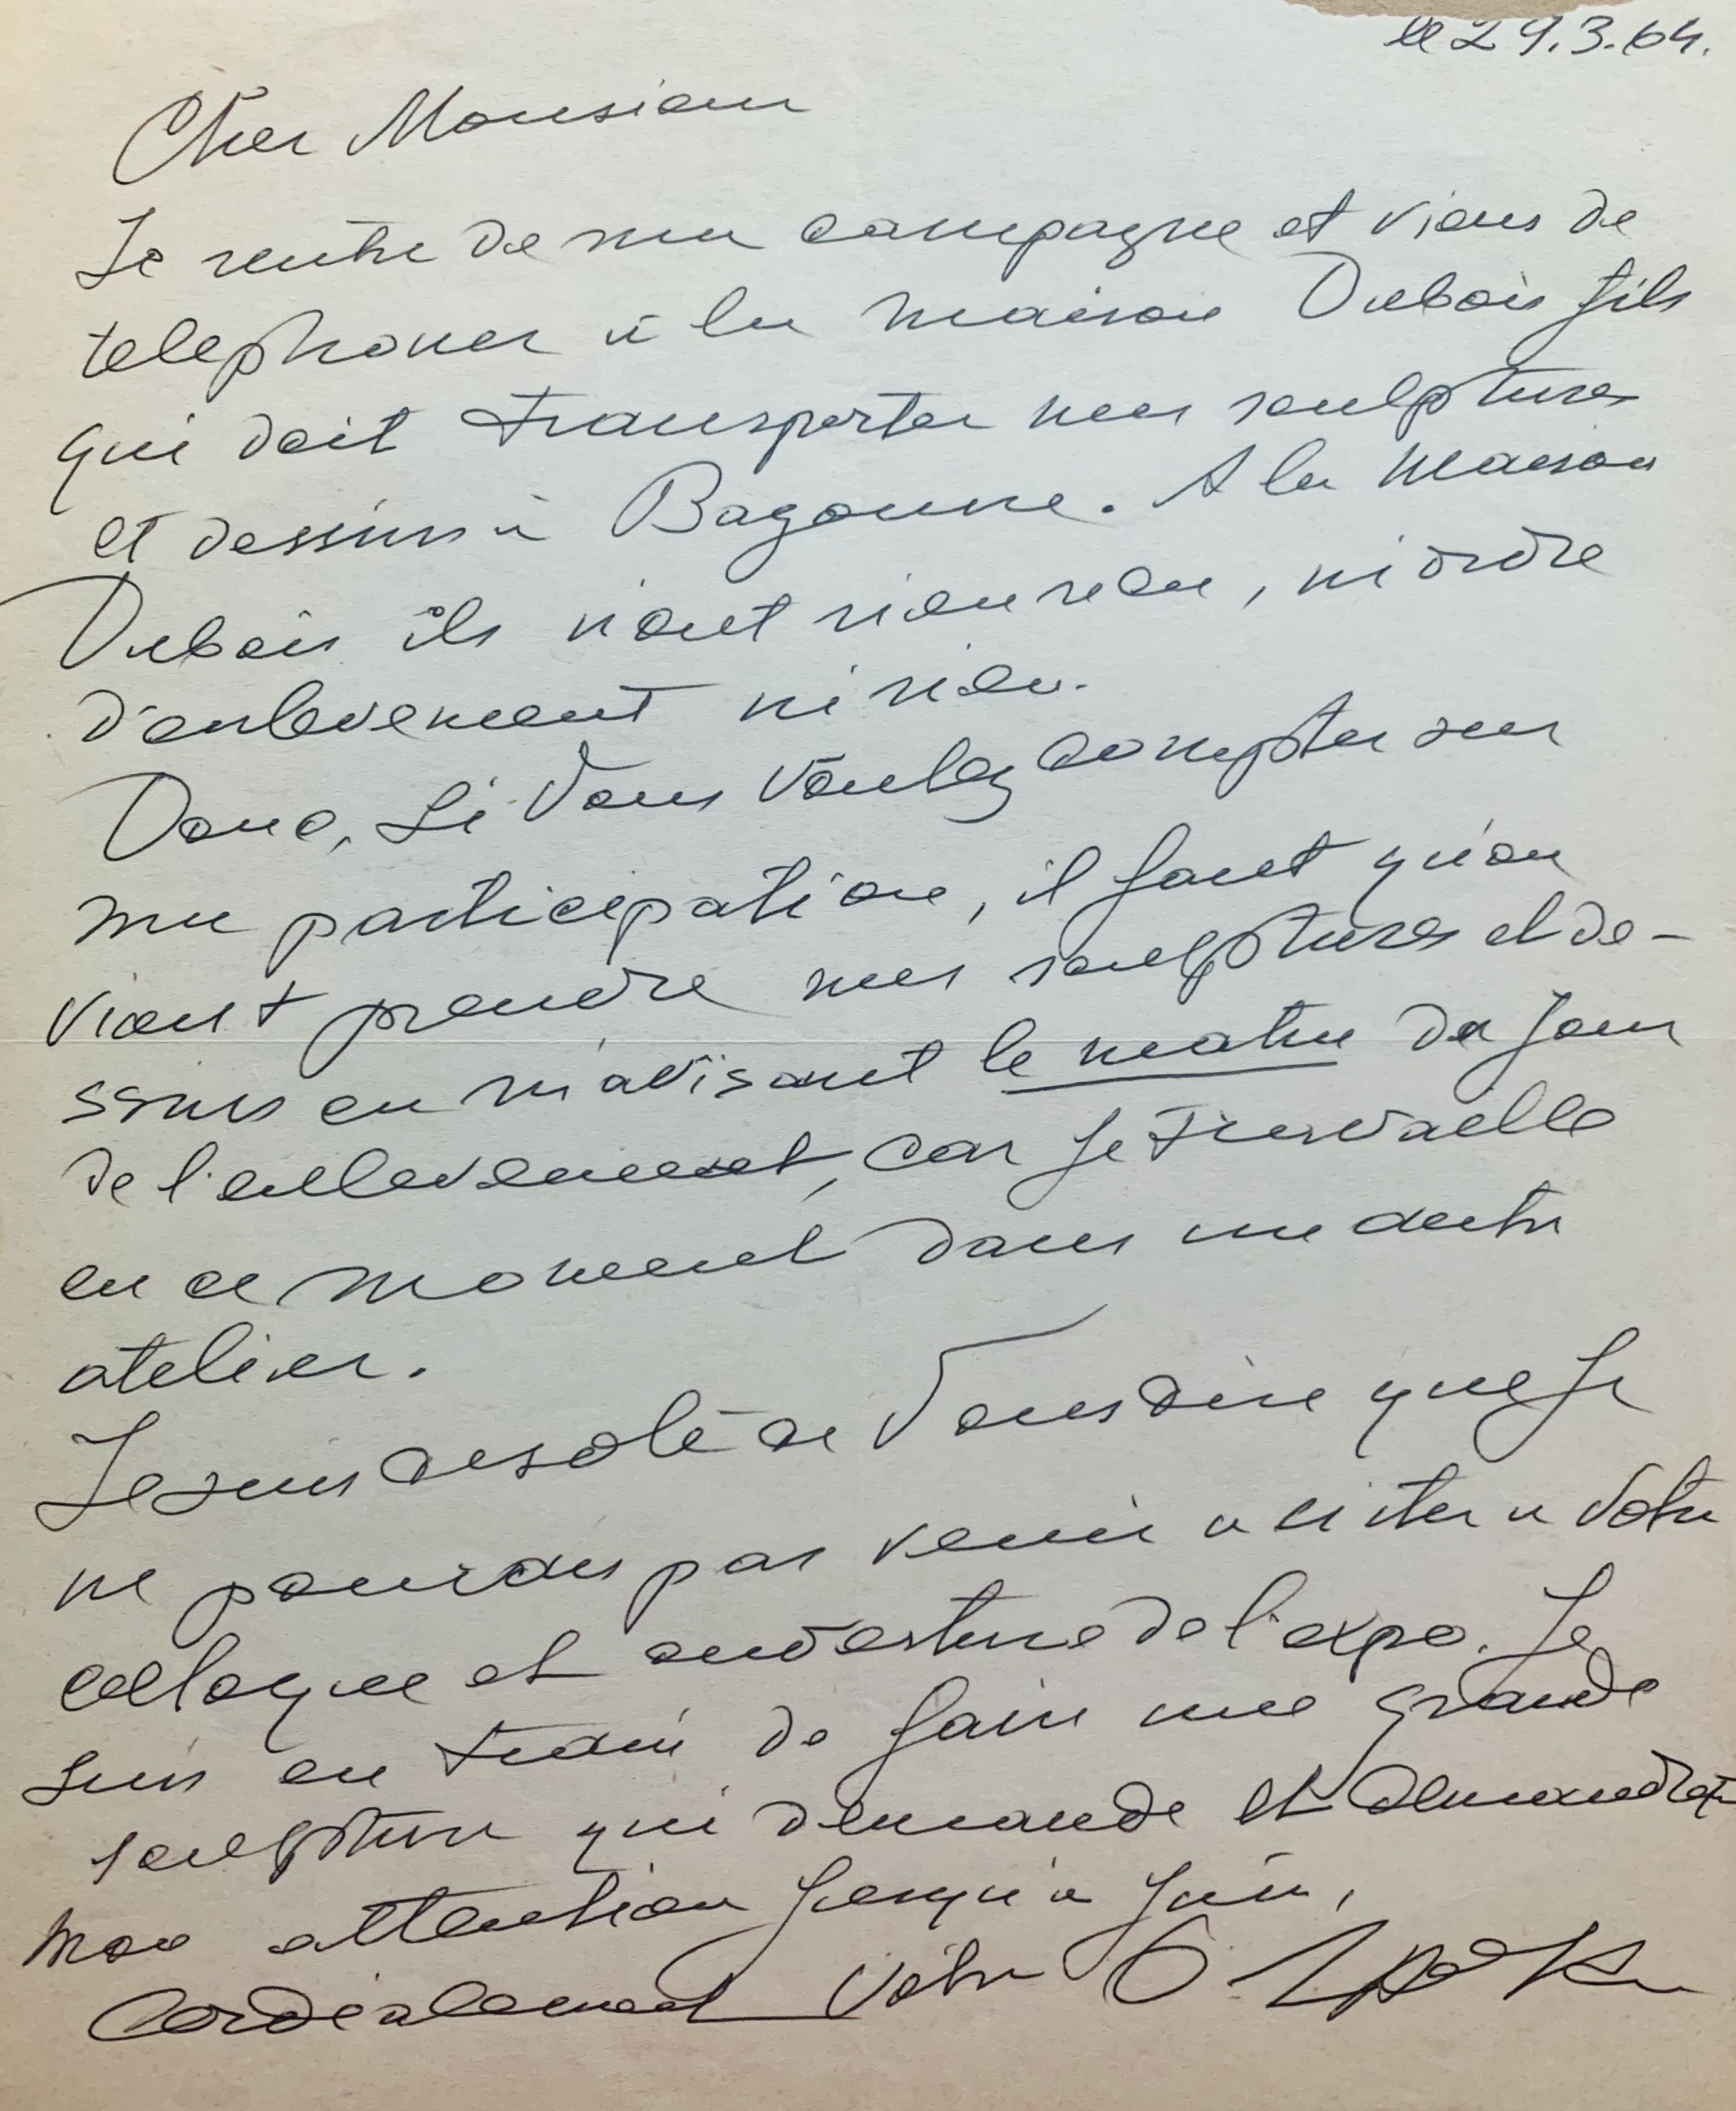 le 29.3.64.
Cher Monsieur
Je rentre de ma campagne et viens de
telephoner à la maison Dubois fils
qui doit transporter mes sculptures
et dessins à Bayonne. A la maison
Dubois ils n'ont rien recu, ni ordre
d'enlevement ni rien.
Donc, si vous voulez compter sur
ma participation, il faut qu'on
vient prendre mes sculptures et de-
ssins en m'avisant le matin du jour
de l'enlevement, car je travaille
en ce moment dans un autre
atelier.
Je suis desolé de vous dire que je
ne pourais pas venir assister a votre
colloque et ouverture de l'expo. Je
suis en train de faire une grande
sculpture qui demande et demandrat
mon attention jusqu'a juin,
Cordialement votre